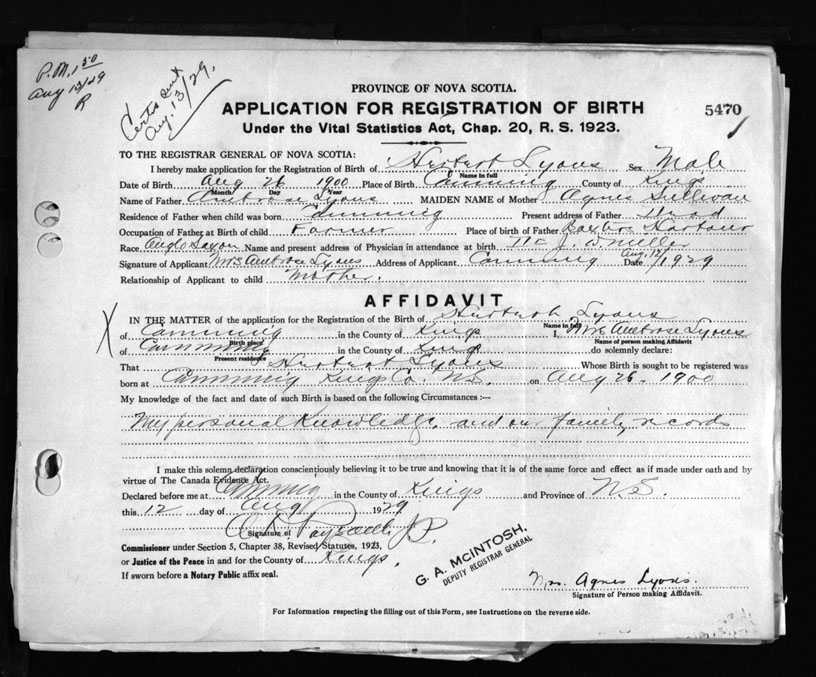 P.M. 1 50
Aug 13/29
R
Certif sent
Aug. 13/29.
PROVINCE OF NOVA SCOTIA.
APPLICATION FOR REGISTRATION OF BIRTH
5470
Under the Vital Statistics Act, Chap. 20, R. S. 1923.
TO THE REGISTRAR GENERAL OF NOVA SCOTIA:
I hereby make application for the Registration of Birth of Herbert Lyons Sex Male
Name in full
Date of Birth Aug 26 1900 Place of Birth Canning County of Kings
Month Day Year
Name of Father Ambrose Lyons MAIDEN NAME of Mother Agnes Sullivan
Residence of Father when child was born Canning Present address of Father Dead
Occupation of Father at Birth Farmer Place of birth of Father Baxters Harbour
Race Anglo Saxon Name and present address of Physician in attendance at birth Miller
Signature of Applicant Mrs Ambrose Lyons Address of Applicant Canning Date Aug. 12/1929
Relationship of Applicant to child Mother.
AFFIDAVIT
X
IN THE MATTER of the application for the Registration of the Birth of Herbert Lyons
Name in full
of Canning in the County of Kings I, Mrs Ambrose Lyons
Birth place Name of person making Affidavit
of Canning in the County of Kings do solemnly declare:
Present residence
That Herbert Lyons Whose Birth is sought to be registered was
born at Canning Kings Co. N.S. on Aug 26 - 1900
My knowledge of the fact and date of such Birth is based on the following Circumstances :—
My personal Knowledge, and our family records
I make this solemn declaration conscientiously believing it to be true and knowing that it is of the same force and effect as if made under oath and by
virtue of The Canada Evidence Act.
Declared before me at Canning in the County of Kings and Province of N.S.
this 12 day of Aug 1929
Signature of J.P.
Commissioner under Section 5, Chapter 38, Revised Statutes, 1923,
or Justice of the Peace in and for the County of Kings.
If sworn before a Notary Public affix seal.
G. A. McINTOSH,
DEPUTY REGISTRAR GENERAL
Mrs. Agnes Lyons.
Signature of Person making Affidavit.
For Information respecting the filling out of this Form, see Instructions on the reverse side.